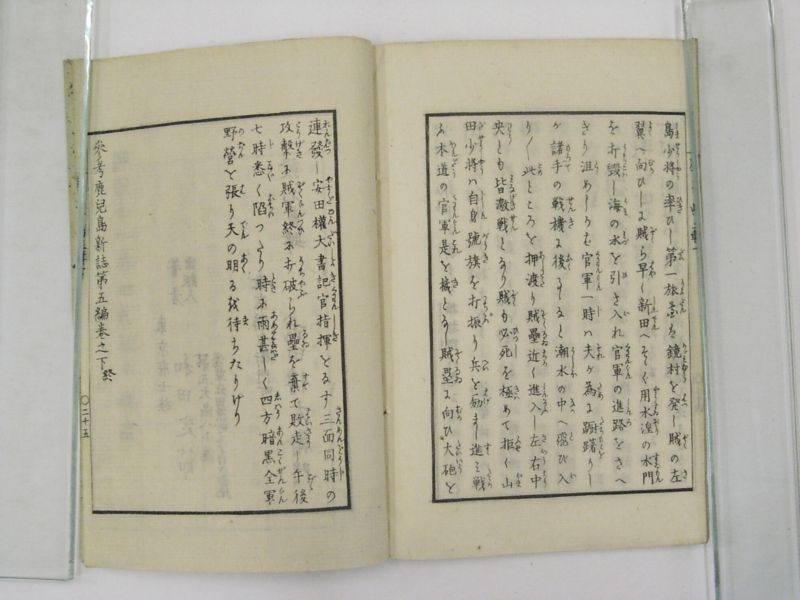 島少将の率ひし第一旅團は鏡村を発し賊の左
翼へ向ひしに賊ら早く新田へそゝぐ用水湟の水門
を打毀し海の水を引き入れ官軍の進路をさへ
ぎり沮めしらむ官軍一時ハ夫が為に躊躇りし
が諸手の戦機に後しと潮水の中へ飛び入
り〳〵此ところを押渡り賊塁近く進入し左右中
央とも皆激戦となり賊も必死を極めて拒く山
田少将ハ自身號旗を打振り兵を励まし進ミ戦
本道の官軍是を機とし賊塁に向ひ大砲を
連發し安田權大書記官指揮をなす三面同時の
攻撃に賊軍終に打破られ塁を棄て敗走し午後
七時悉く陥つたり時に雨甚しく四方暗黒全軍
野營を張り天の明るを待ちたりけり
参考鹿兒島新誌第五編巻之下終
〇二十五